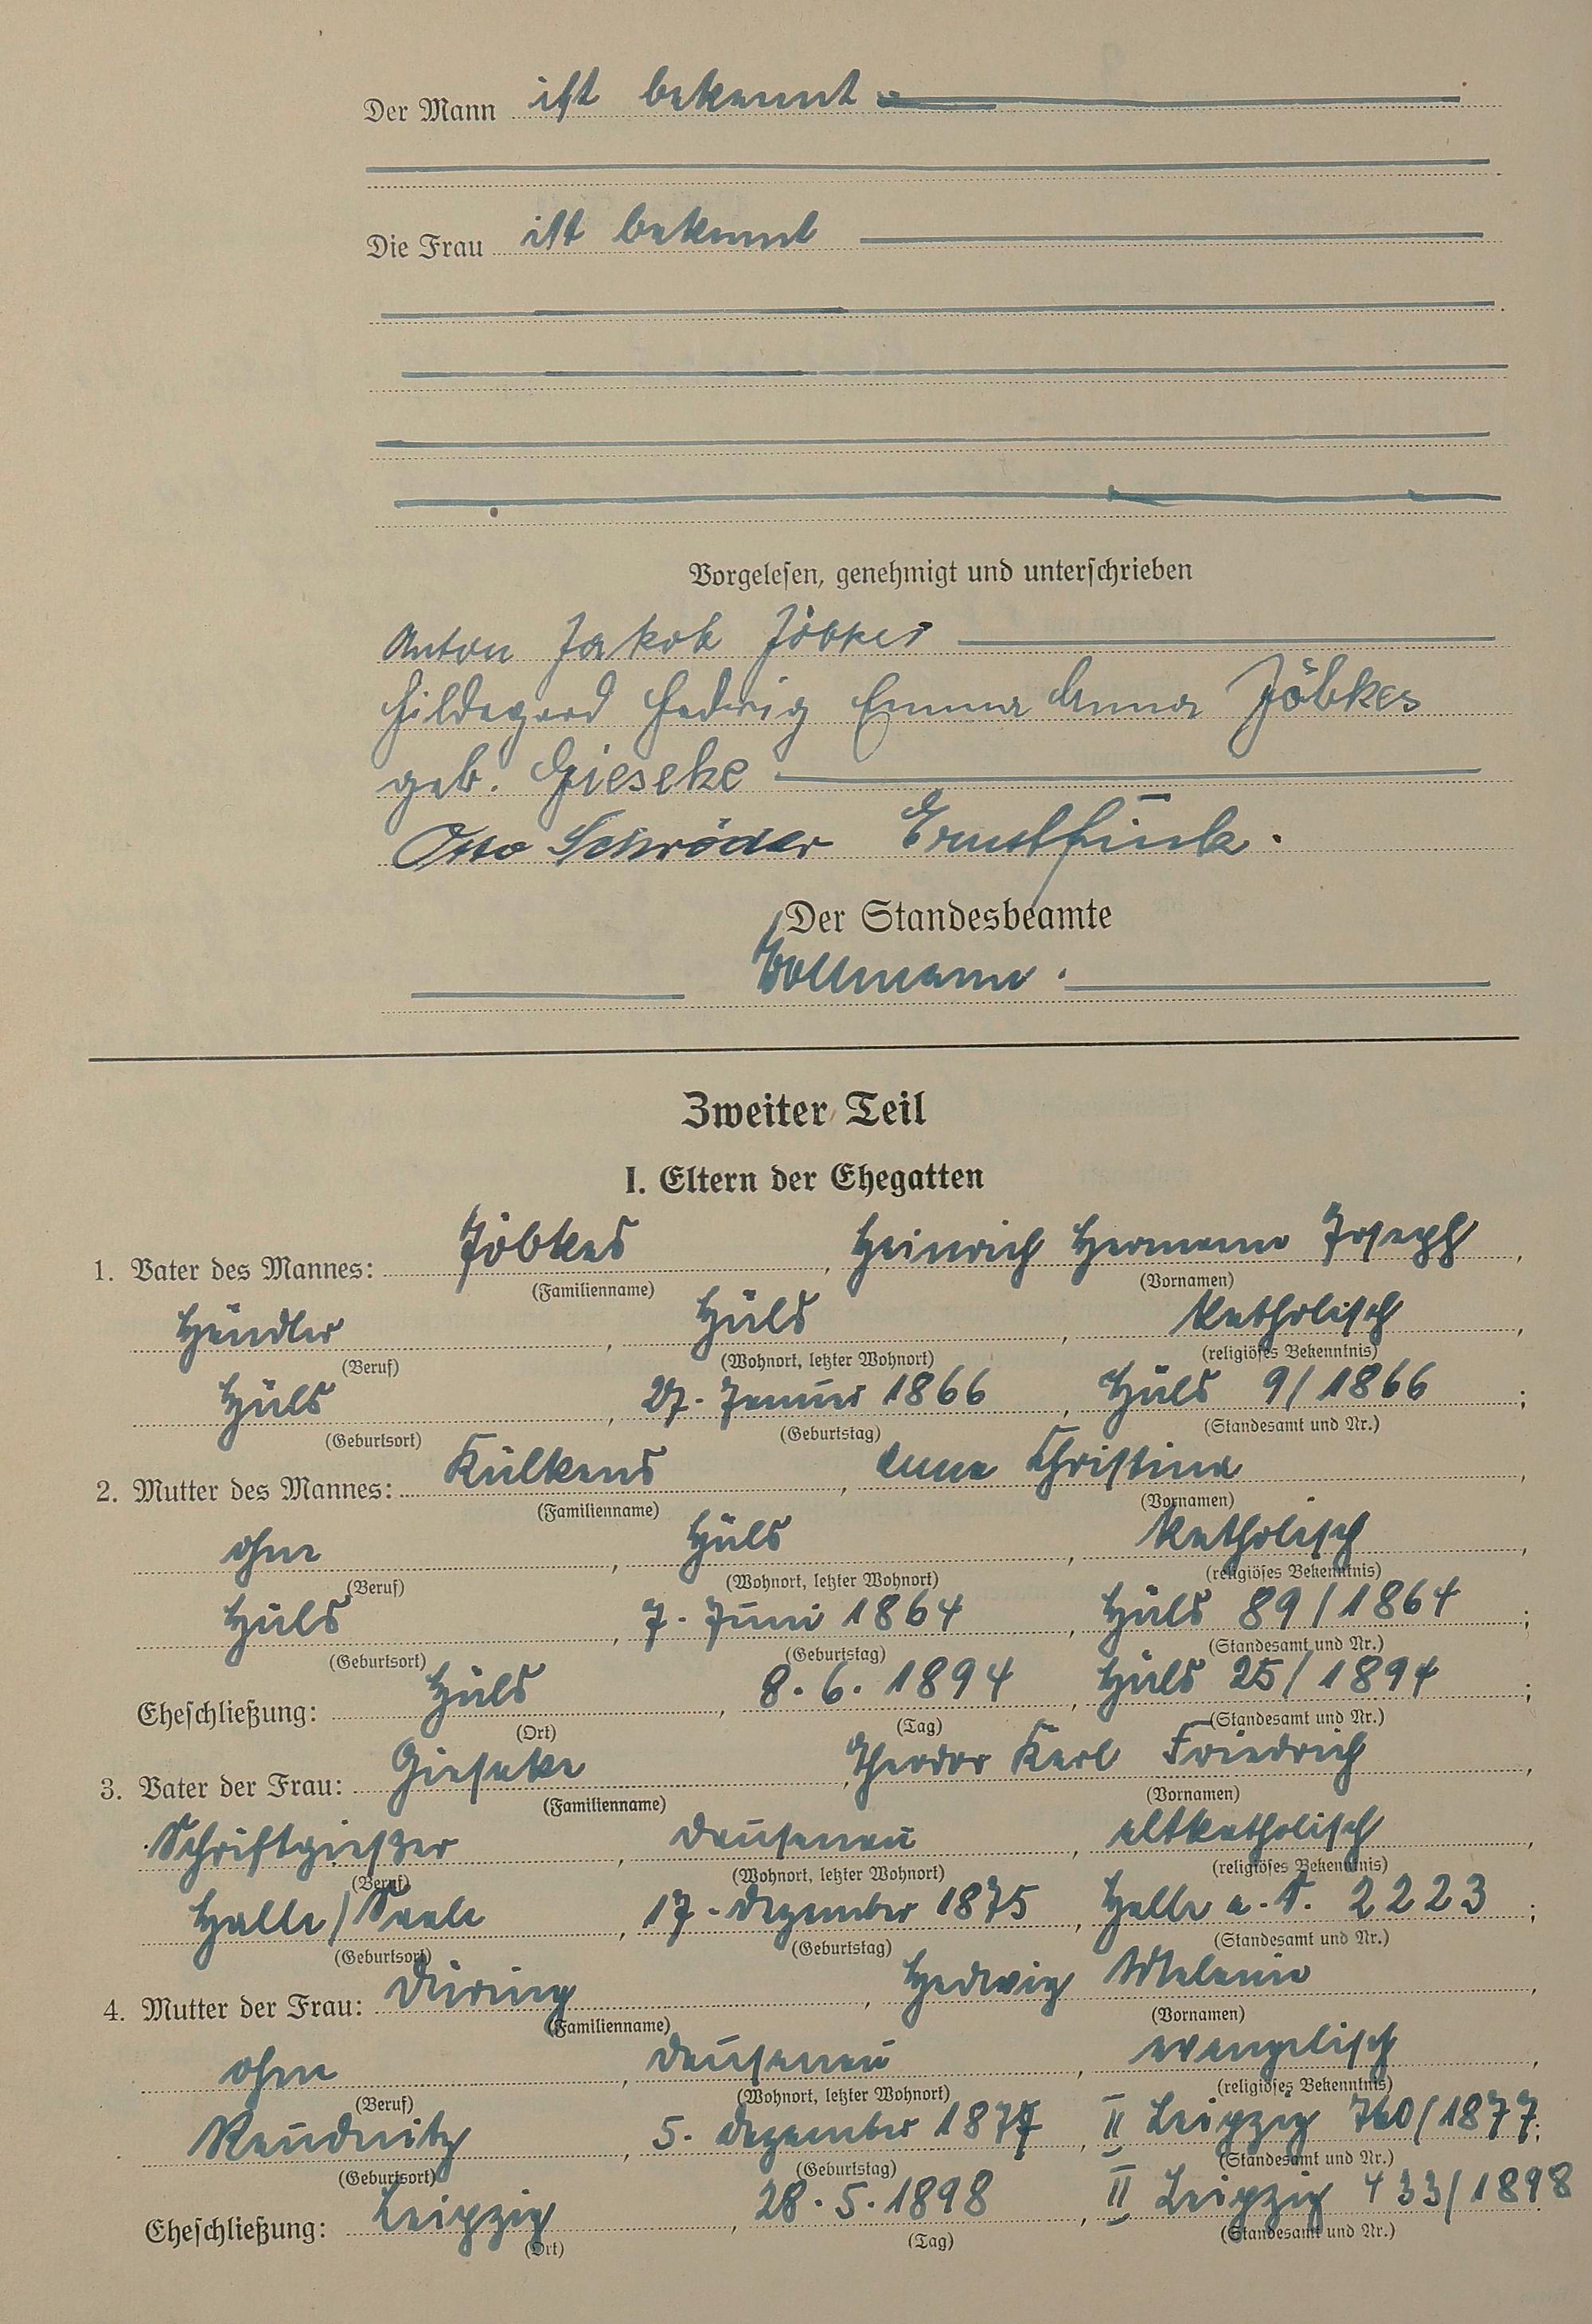 Der Mann ist bekannt
Die Frau ist bekannt
Vorgelesen, genehmigt und unterschrieben
Anton Jakob Jöbkes
Hildegard Hedwig Emma Anna Jöbkes
geb. Gieseke
Otto Schröder Ernst Finck.
Der Standesbeamte
Vollmann.
Zweiter Teil
I. Eltern der Ehegatten
1. Vater des Mannes: Jöbkes, Heinrich Hermann Joseph,
(Familienname) (Vornamen)
Händler, Hüls, katholisch,
(Beruf) (Wohnort, letzter Wohnort) (religiöses Bekenntnis)
Hüls, 27. Januar 1866, Hüls 9/1866;
(Geburtsort) (Geburtstag) (Standesamt und Nr.)
2. Mutter des Mannes: Külkens, Anna Christina,
(Familienname) (Vornamen)
ohne, Hüls, katholisch,
(Beruf) (Wohnort, letzter Wohnort) (religiöses Bekenntnis)
Hüls, 7. Juni 1864, Hüls 89/1864;
(Geburtsort) (Geburtstag) (Standesamt und Nr.)
Eheschließung: Hüls, 8. 6. 1894, Hüls 25/1894;
(Ort) (Tag) (Standesamt und Nr.)
3. Vater der Frau: Gieseke, Theodor Karl Friedrich,
(Familienname) (Vornamen)
Schriftgießer, Dausenau, altkatholisch,
(Beruf) (Wohnort, letzter Wohnort) (religiöses Bekenntnis)
Halle/Saale, 17. Dezember 1875, Halle a. S. 2223;
(Geburtsort) (Geburtstag) (Standesamt und Nr.)
4. Mutter der Frau: Düring, Hedwig Melanie,
(Familienname) (Vornamen)
ohne, Dausenau, evangelisch,
(Beruf) (Wohnort, letzter Wohnort) (religiöses Bekenntnis)
Reudnitz, 5. Dezember 1877, II Leipzig 760/1877;
(Geburtsort) (Geburtstag) (Standesamt und Nr.)
Eheschließung: Leipzig, 28. 5. 1898, II Leipzig 433/1898
(Ort) (Tag) (Standesamt und Nr.)